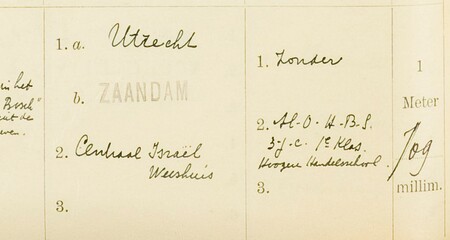 in het
Bosch"
uit de
1. a. Utrecht
b. ZAANDAM
2. Centraal Israël
Weeshuis
3.
1. Zonder
2. Al-O-H-B-S.
3-j-c. 1e Klas.
Hoogere Handelsschool.
3.
1
Meter
709
millim.